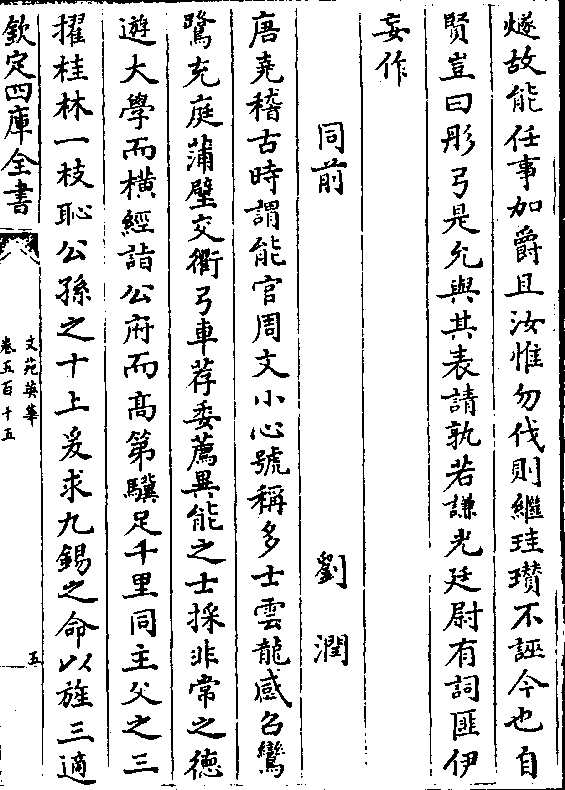 燧故能任事加爵且汝惟勿伐則繼珪瓉不誣今也自
賢豈曰彤弓是允與其表請孰若謙光廷尉有詞匪伊
妄作
同前 劉潤
唐堯稽古時謂能官周文小心號稱多士雲龍感召鸞
鷺充庭蒲璧交衢弓車荐委薦異能之士採非常之德
遊大學而橫經詣公府而髙第驥足千里同主父之三
擢桂林一枝恥公孫之十上爰求九錫之命以旌三適
欽定四庫全書
文苑英華
卷五百十五
五